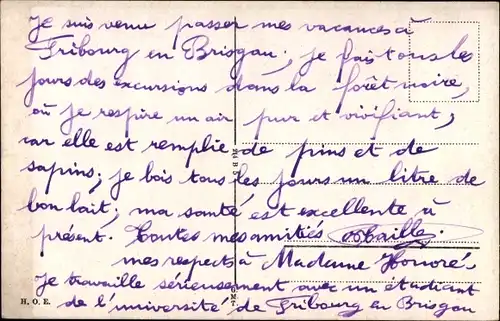 Je suis venu passer mes vacances à
Fribourg en Brisgau; je fais tous les
jours des excursions dans la forêt noire,
où je respire un air pur et vivifiant,
car elle est remplie de pins et de
sapins; je bois tous les jours un litre de
bon lait; ma santé est excellente à
présent. Toutes mes amitiés
mes respects à Madame Honoré.
Je travaille sérieusement avec un étudiant
de l'université de Fribourg en Brisgau
H. O. E.